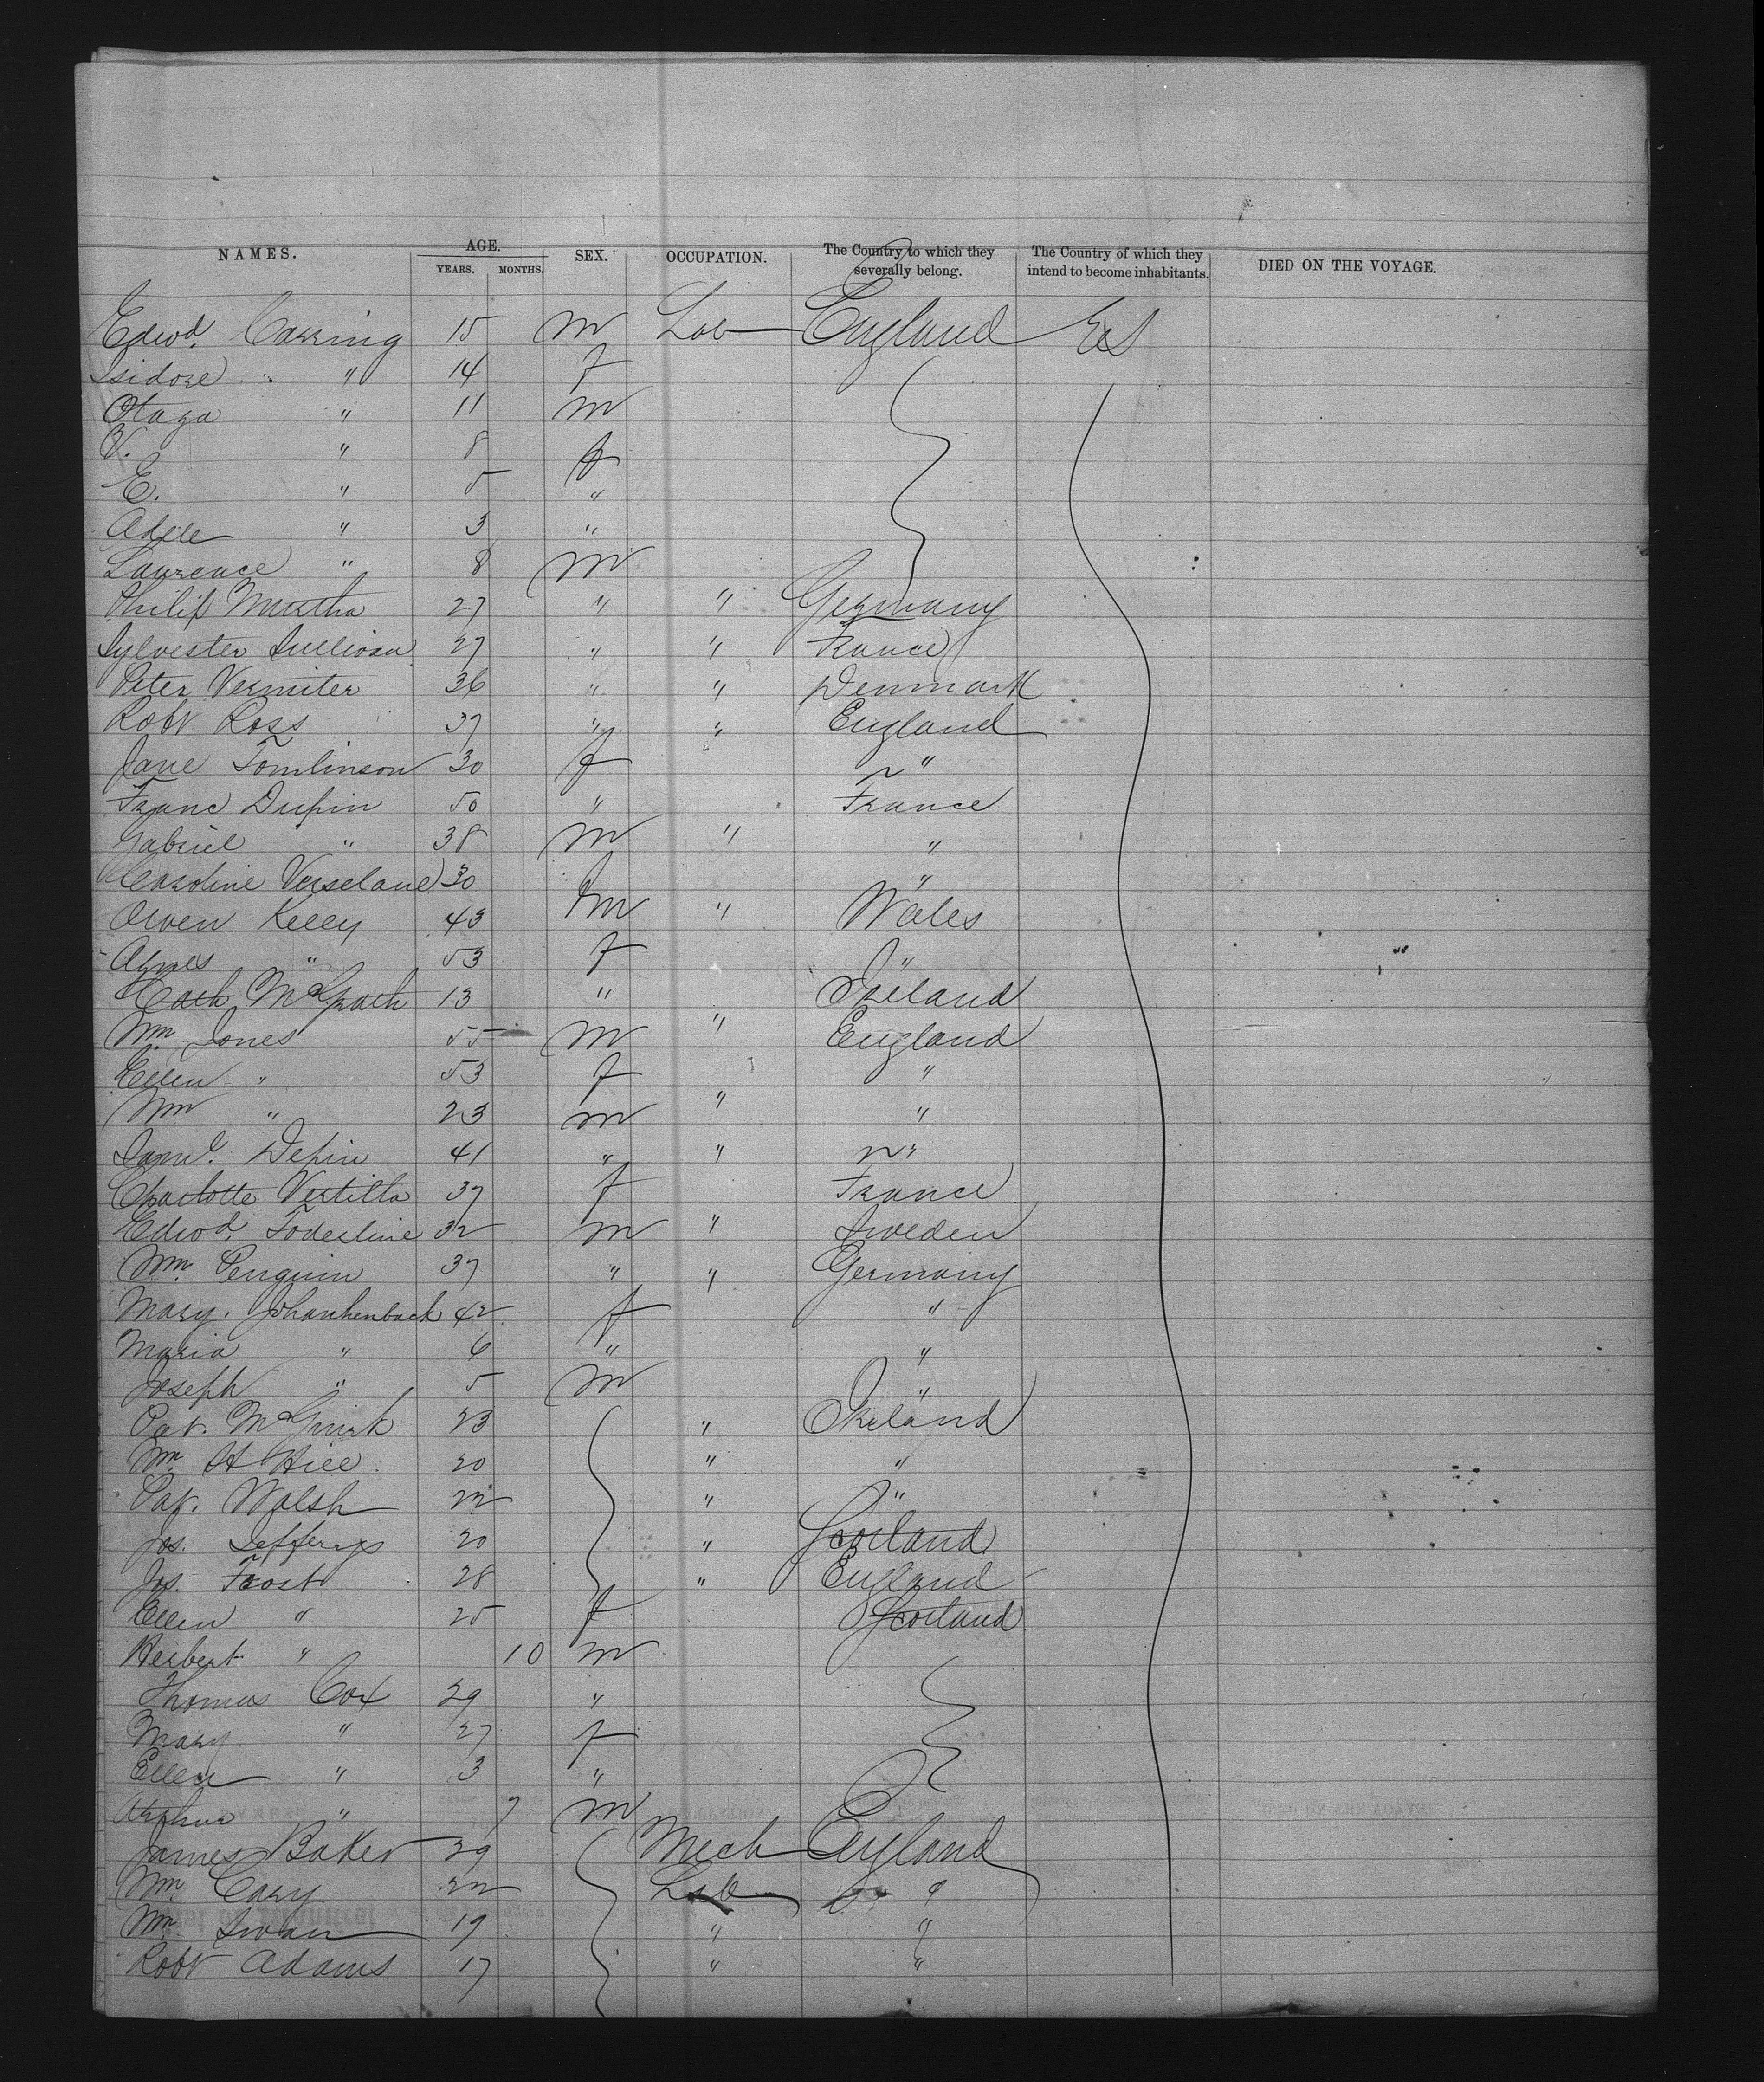 NAMES. AGE. SEX. OCCUPATION. The Country to which they severally belong. The Country of which they intend to become inhabitants. DIED ON THE VOYAGE.
YEARS. MONTHS.
Edwd. Carring 15 m Lab England US
Isidore " 14 f
Otaza " 11 m
V. " 8 f
E. " 5 "
Adele " 3 "
Lawrence " 8 m
Philip Murtha 27 " " Germany
Sylvester Sullivan 27 " " France
Peter Vermiter 36 " " Denmark
Robt Ross 37 " " England
Jane Tomlinson 30 f "
Franc Dupin 50 " France
Gabriel " 38 m " "
Caroline Verseland 30 "
Owen Kelly 43 m " Wales
Agnes " 53 f "
Cath McGrath 13 " Ireland
Wm Jones 55 m " England
Ellen " 53 f "
Wm " 23 m " "
Saml. Depin 41 " " "
Charlotte Vertilla 37 f France
Edwd. Foderline 32 m " Sweden
Wm Penguin 37 " " Germany
Mary. Johankenbach 42 f "
Maria " 6 " "
Joseph " 5 m "
Pat. McGuirk 23 " Ireland
Wm H Hill 20 " "
Pat. Walsh 22 " "
Jos. Jefferys 20 " Scotland
Jos Frost 28 " England
Ellen " 25 f Scotland
Herbert " 10 m
Thomas Cox 29 "
Mary " 27 f
Ellen " 3 "
Arthur " 7 m
James Baker 29 Mech England
Wm Cary 22 Lab "
Wm Swan 19 " "
Robt Adams 17 " "